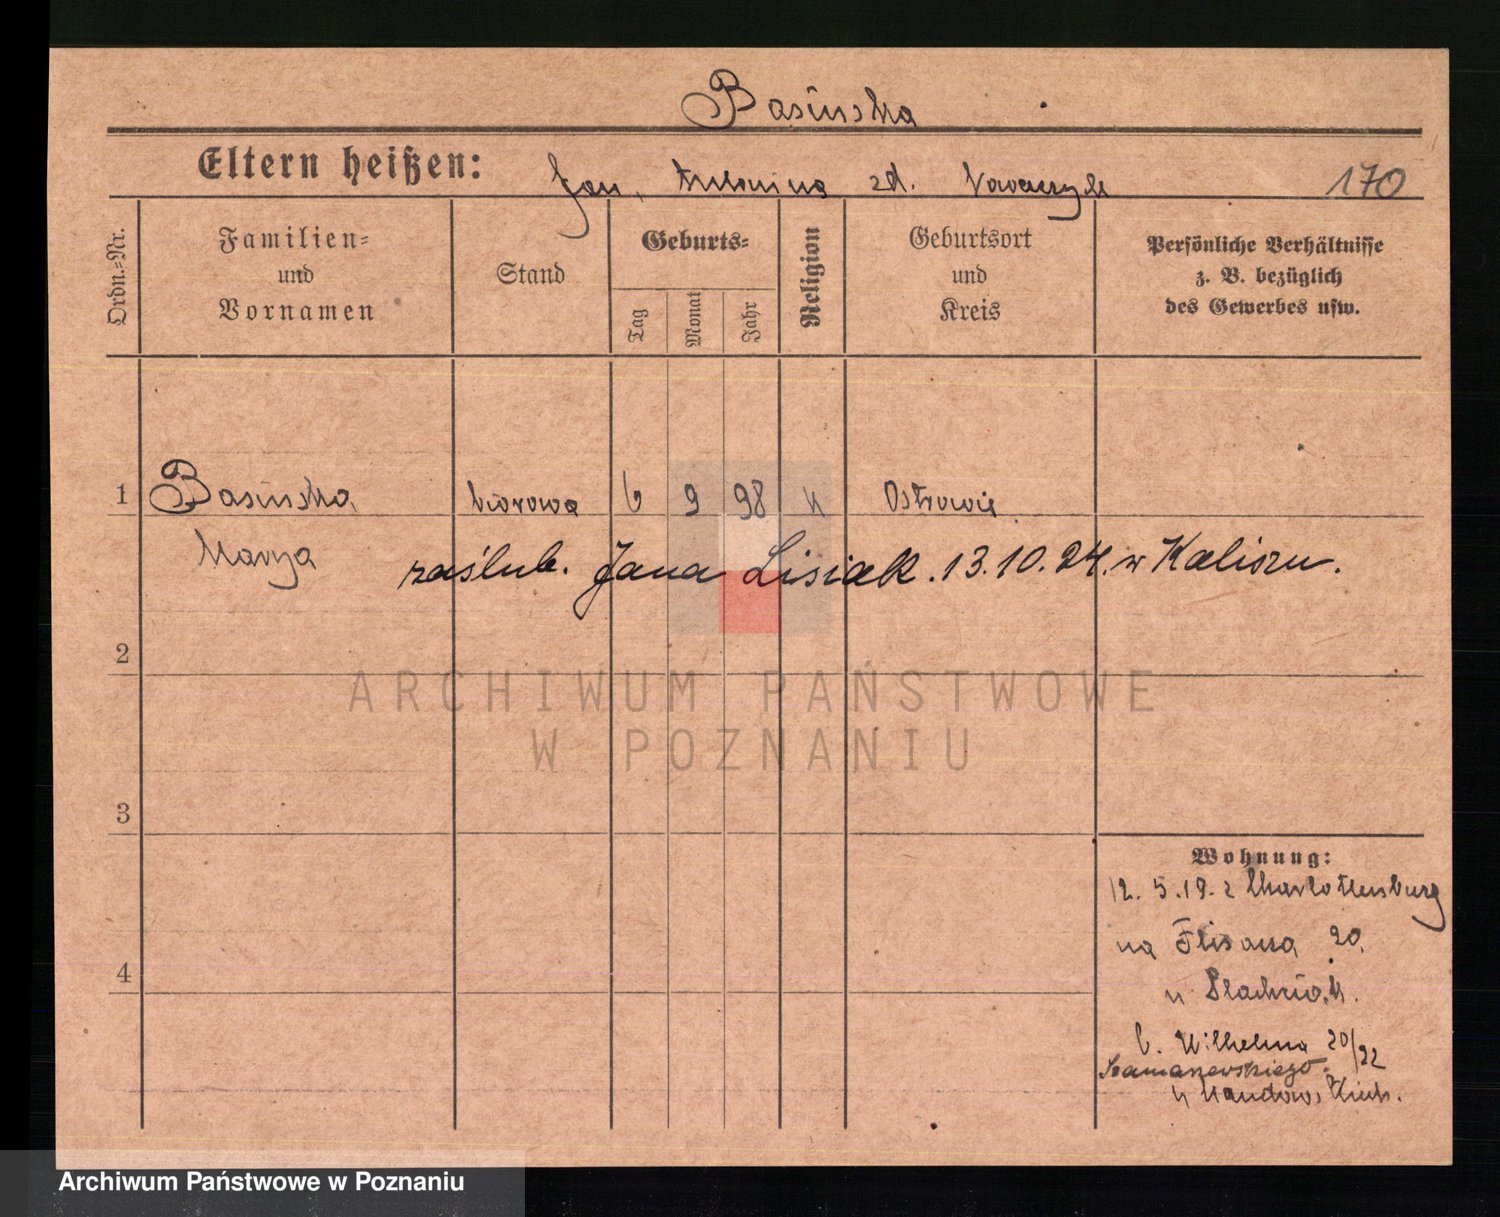 Basińska
Eltern heißen: Jan, Antonina zd. Nowaczyk 170
Ordn.=Nr. Familien= und Vornamen Stand Geburts= Tag Monat Jahr Religion Geburtsort und Kreis Persönliche Verhältnisse z. B. bezüglich des Gewerbes usw.
1 Basińska biurowa 6 9 98 k Ostrowie
Marya
zaślub. Jana Lisiak. 13.10.24. w Kaliszu.
2
ARCHIWUM PAŃSTWOWE
W POZNANIU
3
Wohnung:
12. 5. 19. z Charlottenburg
na 20,
u
b. Wilhelma 20/22
Szamarzewskiego
4
Archiwum Państwowe w Poznaniu